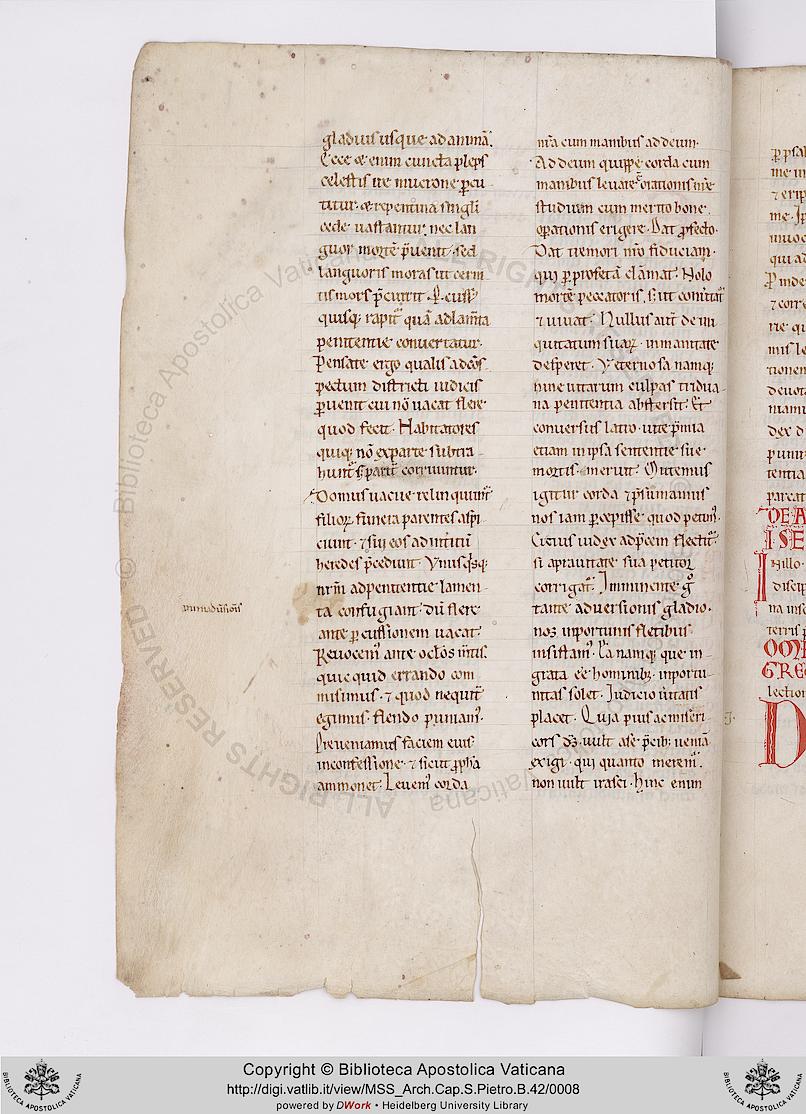 gladius usque ad animā.
Ecce & enim cuncta plebs
celestis ire mucrone ꝑcu
titur. & repentina singuli
cede uastantur. nec lan
guor mortē p̄uenit. sed
languoris moras ut cerni
tis mors p̄currit.
quisq; rapit̄ quā ad lam̄ta
penitentie conuertatur.
Pensate ergo qualis ad cōs
pectum districti iudicis
ꝑuenit cui nō uacat flere
quod fecit. Habitatores
quiq; nō ex parte subtra
hunt̄ s; parit̄ corruuntur.
Domus uacue relinquunt̄
filioꝝ funera parentes aspi
ciunt. & sui eos ad intitū
heredes p̄cedunt. Vnusq̄sq;
nrm̄ ad penitentie lamen
ta confugiant. dū flere
ante ꝑcussionem uacat.
Reuocem᷒ ante oclōs m̄tis.
quicquid errando com
misimus. & quod nequit̄
egimus. flendo puniam᷒.
Preueniamus faciem eius
in confessione. & sicut ꝓpha
ammonet. Leuem᷒ corda
nr̄a cum manibus ad deum.
Ad deum quippe corda cum
manibus leuare ē orationis nr̄e
studium cum merito bone
oꝑationis erigere. Dat ꝓfecto.
Dat tremori nr̄o fiduciam.
qui ꝑ ꝓfetā clamat. Nolo
mortē peccatoris. s; ut conu̓tat̄
& uiuat. Nullus aut̄ de ini
quitatum suaꝝ inmanitate
desperet. Veternosa namq;
niniuitarum culpas tridua
na penitentia abstersit. Et
conuersus latro. uite p̄mia
etiam in ipsa sententie sue
mortis. meruit. Mutemus
igitur corda & p̄sumamus
nos iam ꝑcepisse quod petim᷒.
Citius iudex ad p̄cem flectit̄.
si a prauitate sua petitor
corrigat̄. Imminente g̊
tante aduersionis gladio.
nos inportunis fletibus
insistam᷒. Ea namq; que in
grata ēē hominibꝫ inportu
nitas solet. Iudicio u̓itatis
placet. Quia pius ac miseri
cors dꝰ uult a se p̄cibꝫ ueniā
exigi. qui quanto merem᷒.
non uult irasci. hinc enim
DE A
I SE
OOM
GRE
lection
Copyright © Biblioteca Apostolica Vaticana
http://digi.vatlib.it/view/MSS_Arch.Cap.S.Pietro.B.42/0008
powered by DWork • Heidelberg University Library